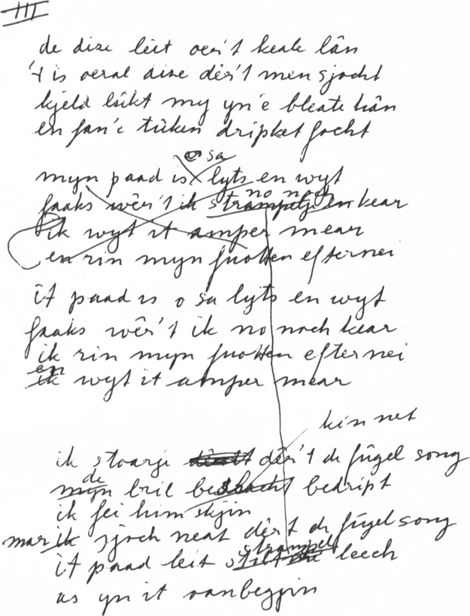 III
de dize leit oer't keale lân
't is oeral dize dêr't men sjocht
kjeld lûkt my yn'e bleate hân
en fan'e tûken dripket focht
o sa
myn paad is lyts en wyt
no noch
faaks wêr't ik strampelj en kear
ik wyt it amper mear
en rin myn fuotten efternei
it paad is o sa lyts en wyt
faaks wêr't ik no noch kear
ik rin myn fuotten efternei
en
ik wyt it amper mear
kin net
ik stoarje dêr't de fûgel song
de
myn bril beslacht bedript
ik fei him skjin
mar ik sjoch neat dêr't de fûgel song
strampel
it paad leit stil en leech
as yn it oanbegjin